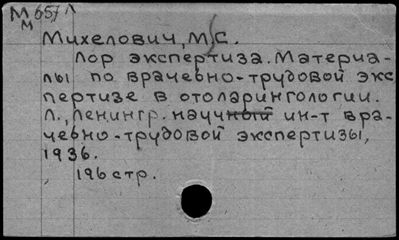 М 657 Л
М
Михелович, М. С.
Лор экспертиза. Материа-
лы по врачебно-трудовой экс
пертизе в отоларингологии.
Л., Ленингр. научный ин-т вра-
чебно-трудовой экспертизы,
1936.
196 стр.